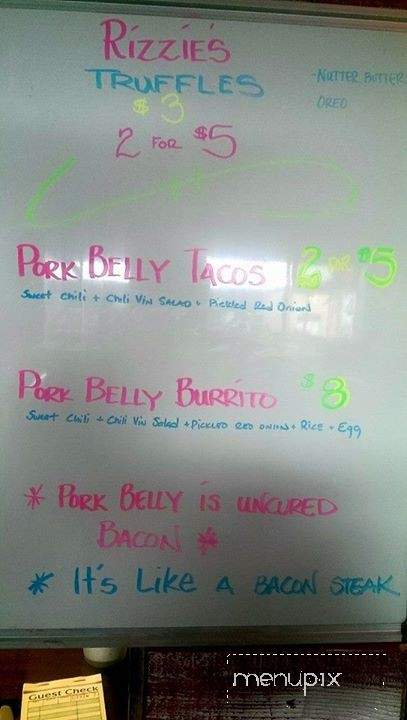 RIZZIE'S
TRUFFLES
- NUTTER BUTTER
OREO
$3
2 FOR $5
PORK BELLY TACOS 2 FOR $5
Sweet Chili + Chili Vin SALAD + Pickled Red Onions
PORK BELLY BURRITO $8
Sweet Chili + Chili Vin Salad + PICKLED RED ONIONS + Rice + Egg
* PORK BELLY IS UNCURED
BACON *
* It's Like A BACON STEAK
menupix
Guest Check